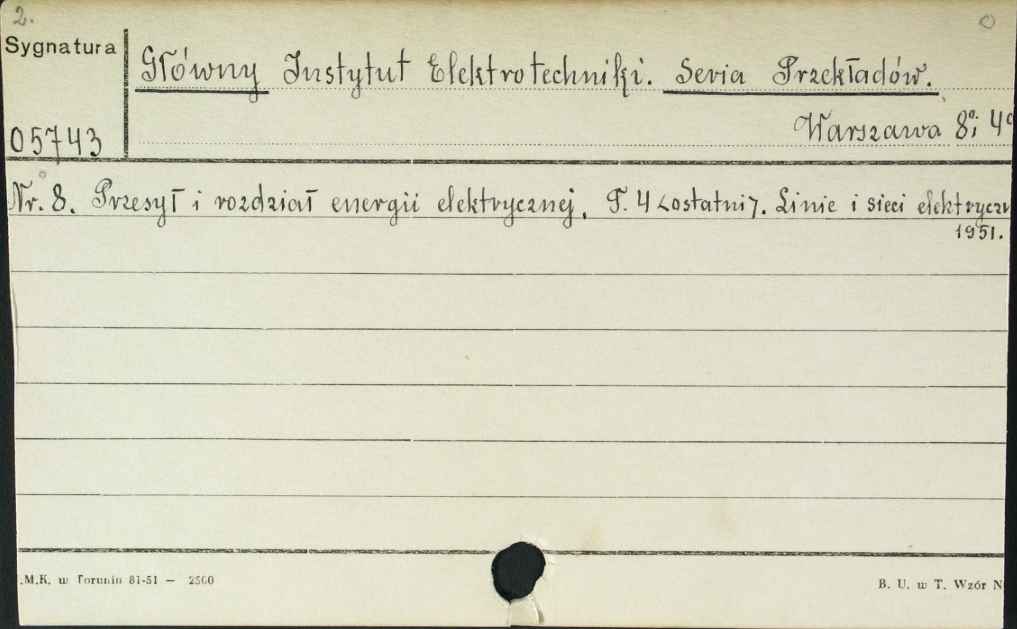 2.
0
Sygnatura
Główny Instytut Elektrotechniki. Seria Przekładów.
Warszawa 8°; 4°
05743
Nr. 8. Przesył i rozdział energii elektrycznej. T. 4 <ostatni>. Linie i sieci elektryczn
1951.
.M.K. w Toruniu 81-51 — 2500
B. U. w T. Wzór N